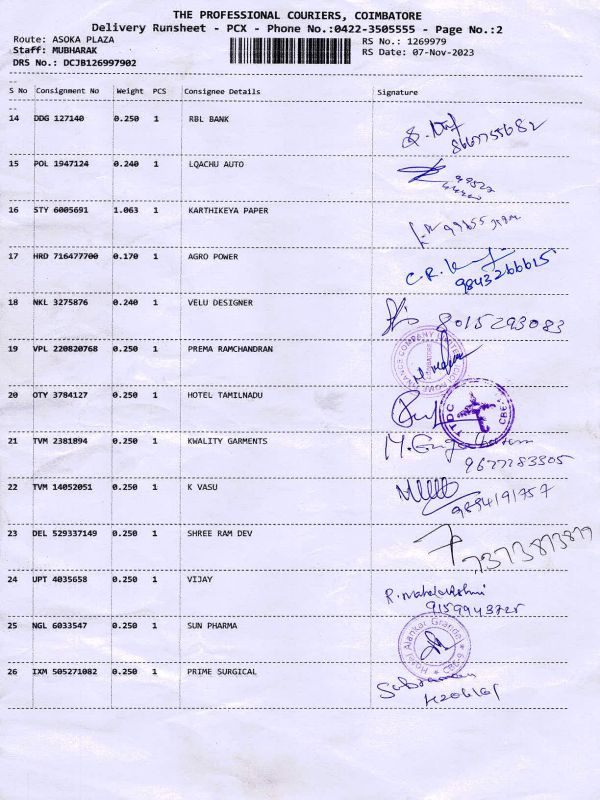 THE PROFESSIONAL COURIERS, COIMBATORE
Delivery Runsheet - PCX - Phone No.:0422-3505555 - Page No.:2
Route: ASOKA PLAZA
RS No.: 1269979
Staff: MUBHARAK
RS Date: 07-Nov-2023
DRS No.: DCJB126997902
S No Consignment No Weight PCS Consignee Details Signature
14 DDG 127140 0.250 1 RBL BANK
8667755682
15 POL 1947124 0.240 1 LQACHU AUTO
16 STY 6005691 1.063 1 KARTHIKEYA PAPER
17 HRD 716477700 0.170 1 AGRO POWER
9843266615
18 NKL 3275876 0.240 1 VELU DESIGNER
8015293083
19 VPL 220820768 0.250 1 PREMA RAMCHANDRAN
20 OTY 3784127 0.250 1 HOTEL TAMILNADU
TTDC
21 TVM 2381894 0.250 1 KWALITY GARMENTS
9677283305
22 TVM 14052051 0.250 1 K VASU
9894191757
23 DEL 529337149 0.250 1 SHREE RAM DEV
7373873879
24 UPT 4035658 0.250 1 VIJAY
R. Mahalakshmi
9159943725
25 NGL 6033547 0.250 1 SUN PHARMA
Hotel Alankar Grande CBE-9
26 IXM 505271082 0.250 1 PRIME SURGICAL